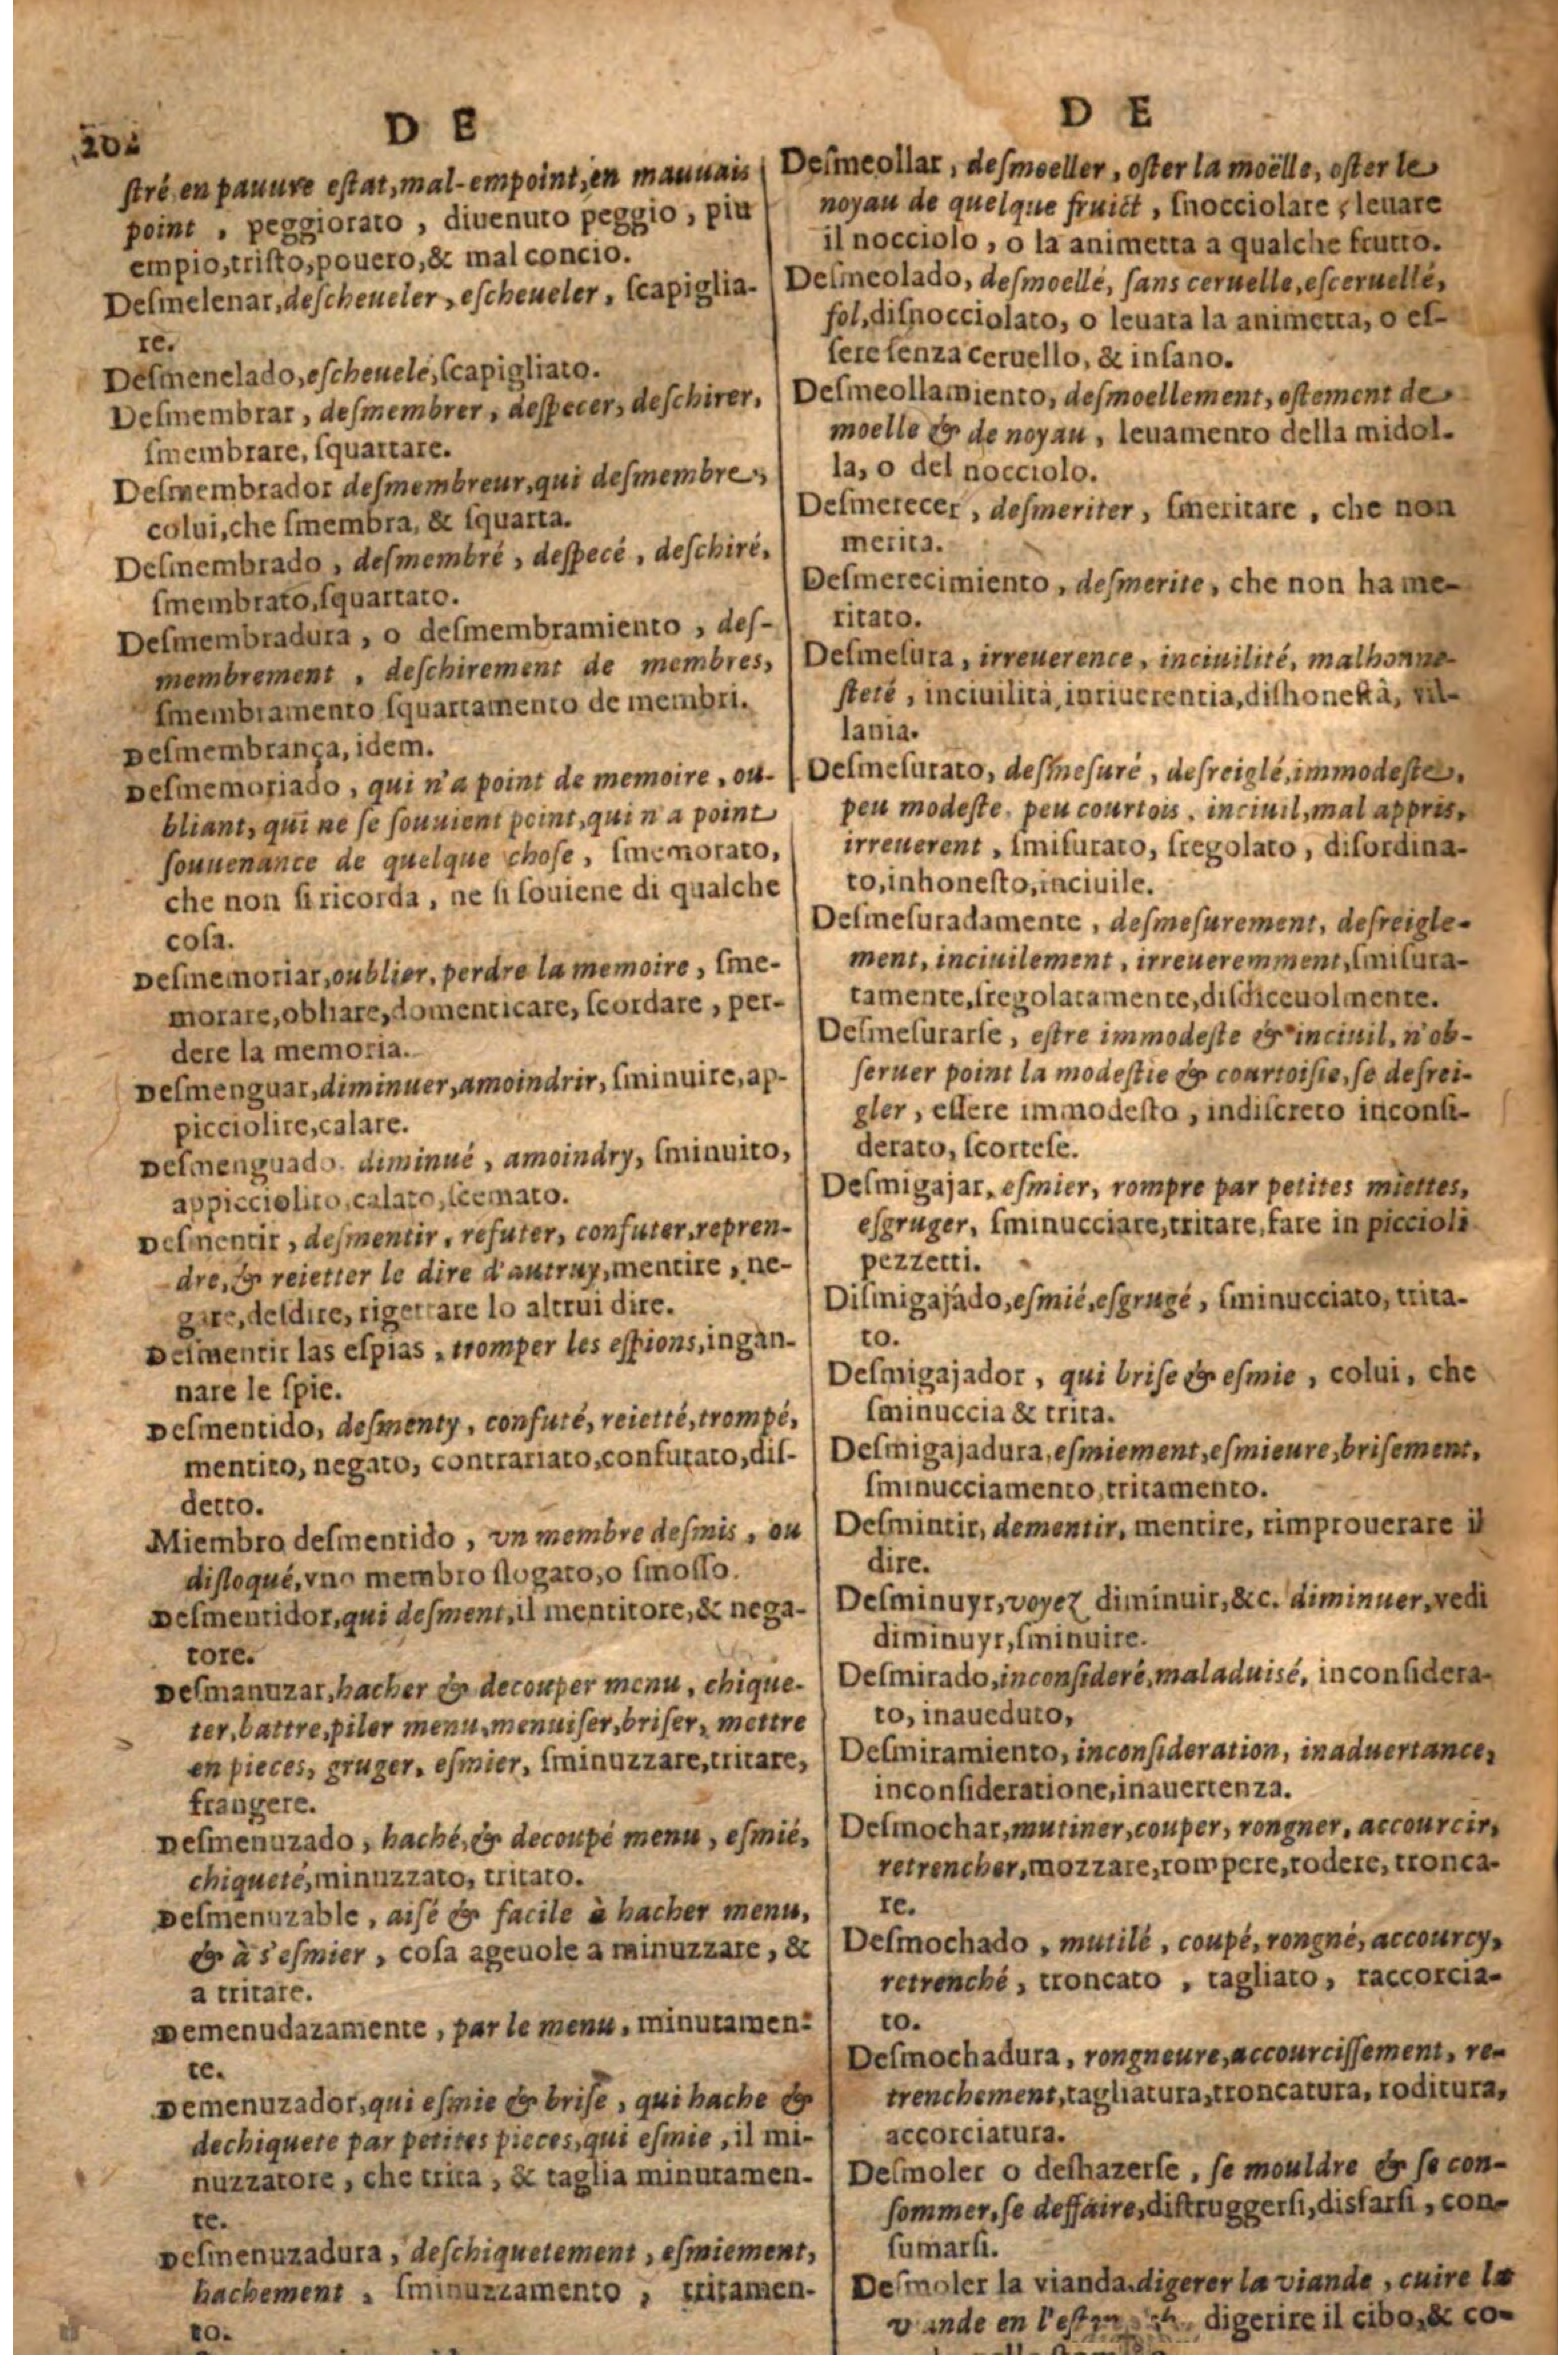 D E
ſtré en pauure eſtat, mal-empoint, en mauuais
point, peggiorato, diuenuto peggio, piu
empio, triſto, pouero, & mal concio.
Deſmelenar, deſcheueler, eſcheueler, ſcapiglia-
re.
Deſmenelado, eſcheuelé, ſcapigliato.
Deſmembrar, deſmembrer, deſpecer, deſchirer,
ſmembrare, ſquartare.
Deſmembrador deſmembreur, qui deſmembre,
colui, che ſmembra, & ſquarta.
Deſmembrado, deſmembré, deſpecé, deſchiré,
ſmembrato, ſquartato.
Deſmembradura, o deſmembramiento, deſ-
membrement, deſchirement de membres,
ſmembramento ſquartamento de membri.
Deſmembrança, idem.
Deſmemoriado, qui n'a point de memoire, ou-
bliant, qui ne ſe ſouuient point, qui n'a point
ſouuenance de quelque choſe, ſmemorato,
che non ſi ricorda, ne ſi ſouiene di qualche
coſa.
Deſmemoriar, oublier, perdre la memoire, ſme-
morare, obliare, domenticare, ſcordare, per-
dere la memoria.
Deſmenguar, diminuer, amoindrir, ſminuire, ap-
picciolire, calare.
Deſmenguado diminué, amoindry, ſminuito,
appicciolito, calato, ſcemato.
Deſmentir, deſmentir, refuter, confuter, repren-
dre, & reietter le dire d'autruy, mentire, ne-
gare, deſdire, rigettare lo altrui dire.
Deſmentir las eſpias, tromper les eſpions, ingan-
nare le ſpie.
Deſmentido, deſmenty, confuté, reietté, trompé,
mentito, negato, contrariato, confutato, diſ-
detto.
Miembro deſmentido, vn membre deſmis, ou
diſloqué, vno membro ſlogato, o ſmoſſo.
Deſmentidor, qui deſment, il mentitore, & nega-
tore.
Deſmanuzar, hacher & decouper menu, chique-
ter, battre, piler menu, menuiſer, briſer, mettre
en pieces, gruger, eſmier, ſminuzzare, tritare,
frangere.
Deſmenuzado, haché, & decoupé menu, eſmié,
chiqueté, minuzzato, tritato.
Deſmenuzable, aiſé & facile à hacher menu,
& à s'eſmier, coſa ageuole a minuzzare, &
a tritare.
Demenudazamente, par le menu, minutamen-
te.
Demenuzador, qui eſmie & briſe, qui hache &
dechiquete par petites pieces, qui eſmie, il mi-
nuzzatore, che trita, & taglia minutamen-
te.
Deſmenuzadura, deſchiquetement, eſmiement,
hachement, ſminuzzamento, tritamen-
to.
D E
Deſmeollar, deſmoeller, oſter la moëlle, oſter le
noyau de quelque fruict, ſnocciolare, leuare
il nocciolo, o la animetta a qualche frutto.
Deſmeolado, deſmoellé, ſans ceruelle, eſceruellé,
fol, diſnocciolato, o leuata la animetta, o eſ-
ſere ſenza ceruello, & inſano.
Deſmeollamiento, deſmoellement, oſtement de
moelle & de noyau, leuamento della midol-
la, o del nocciolo.
Deſmerecer, deſmeriter, ſmeritare, che non
merita.
Deſmerecimiento, deſmerite, che non ha me-
ritato.
Deſmeſura, irreuerence, inciuilité, malhonne-
ſteté, inciuilità, inriuerentia, diſhoneſtà, vil-
lania.
Deſmeſurato, deſmeſuré, deſreiglé, immodeſte,
peu modeſte, peu courtois, inciuil, mal appris,
irreuerent, ſmiſurato, ſregolato, diſordina-
to, inhoneſto, inciuile.
Deſmeſuradamente, deſmeſurement, deſreigle-
ment, inciuilement, irreueremment, ſmiſura-
tamente, ſregolatamente, diſdiceuolmente.
Deſmeſurarſe, eſtre immodeſte & inciuil, n'ob-
ſeruer point la modeſtie & courtoiſie, ſe deſrei-
gler, eſſere immodeſto, indiſcreto inconſi-
derato, ſcorteſe.
Deſmigajar, eſmier, rompre par petites miettes,
eſgruger, ſminucciare, tritare, fare in piccioli
pezzetti.
Diſmigajado, eſmié, eſgrugé, ſminucciato, trita-
to.
Deſmigajador, qui briſe & eſmie, colui, che
ſminuccia & trita.
Deſmigajadura, eſmiement, eſmieure, briſement,
ſminucciamento, tritamento.
Deſmintir, dementir, mentire, rimprouerare il
dire.
Deſminuyr, voyez diminuir, &c. diminuer, vedi
diminuyr, ſminuire.
Deſmirado, inconſideré, maladuisé, inconſidera-
to, inaueduto,
Deſmiramiento, inconſideration, inaduertance,
inconſideratione, inauertenza.
Deſmochar, mutiner, couper, rongner, accourcir,
retrencher, mozzare, rompere, rodere, tronca-
re.
Deſmochado, mutilé, coupé, rongné, accourcy,
retrenché, troncato, tagliato, raccorcia-
to.
Deſmochadura, rongneure, accourciſſement, re-
trenchement, tagliatura, troncatura, roditura,
accorciatura.
Deſmoler o deshazerſe, ſe mouldre & ſe con-
ſommer, ſe deffaire, diſtruggerſi, disfarſi, con-
ſumarſi.
Deſmoler la vianda digerer la viande, cuire la
viande en digerire il cibo, & co-